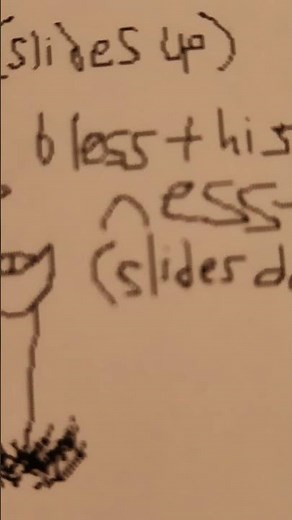 (slides up)
bless this
ness
(slides d